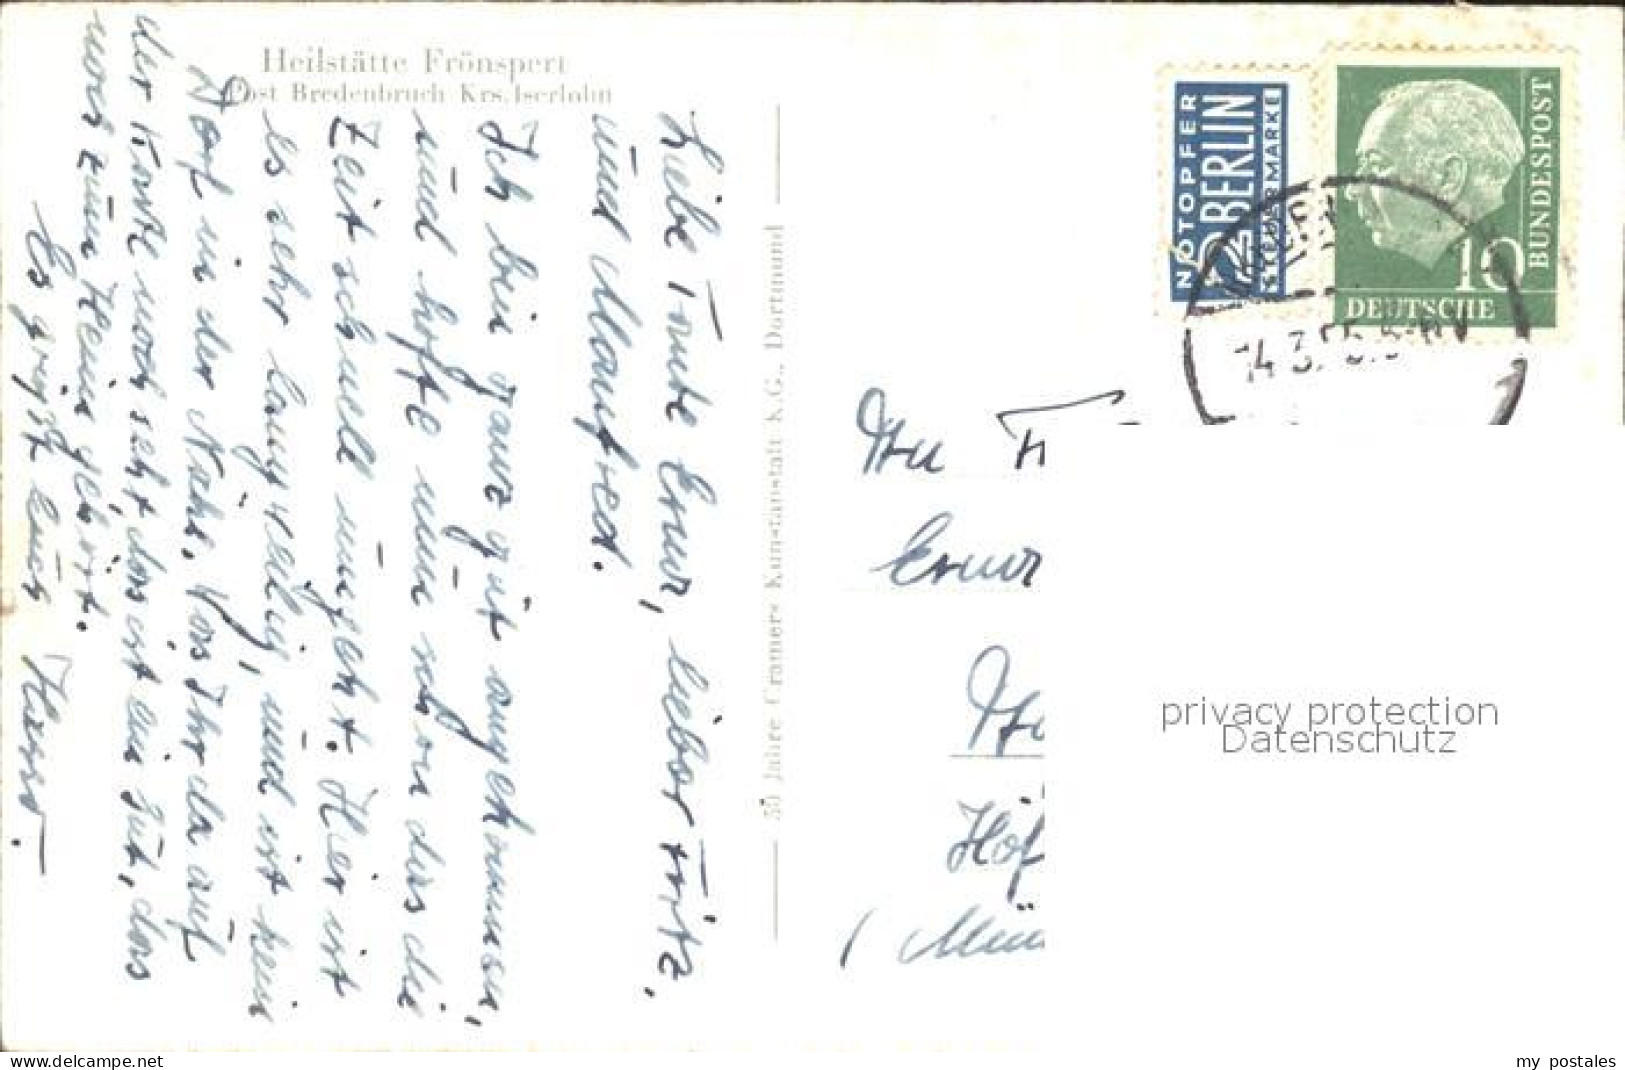 Heilstätte Frönspert
Post Bredenbruch Krs. Iserlohn
Liebe Tante Erna, lieber Fritz,
und Manfred.
Ich bin ganz gut angekommen,
und hoffe nun schon das die
Zeit schnell umgeht. Hier ist
es sehr langweilig, und ist kein
Dorf in der Nähe. Was Ihr da auf
der Karte noch seht, das ist ein Gut, das
noch zum Heim gehört.
Es grüßt Euch
50 Jahre Cramers Kunstanstalt K.G., Dortmund
NOTOPFER
2 BERLIN
STEUERMARKE
10
DEUTSCHE
BUNDESPOST
14.3.
An
Erna
privacy protection
Datenschutz
www.delcampe.net
my_postales